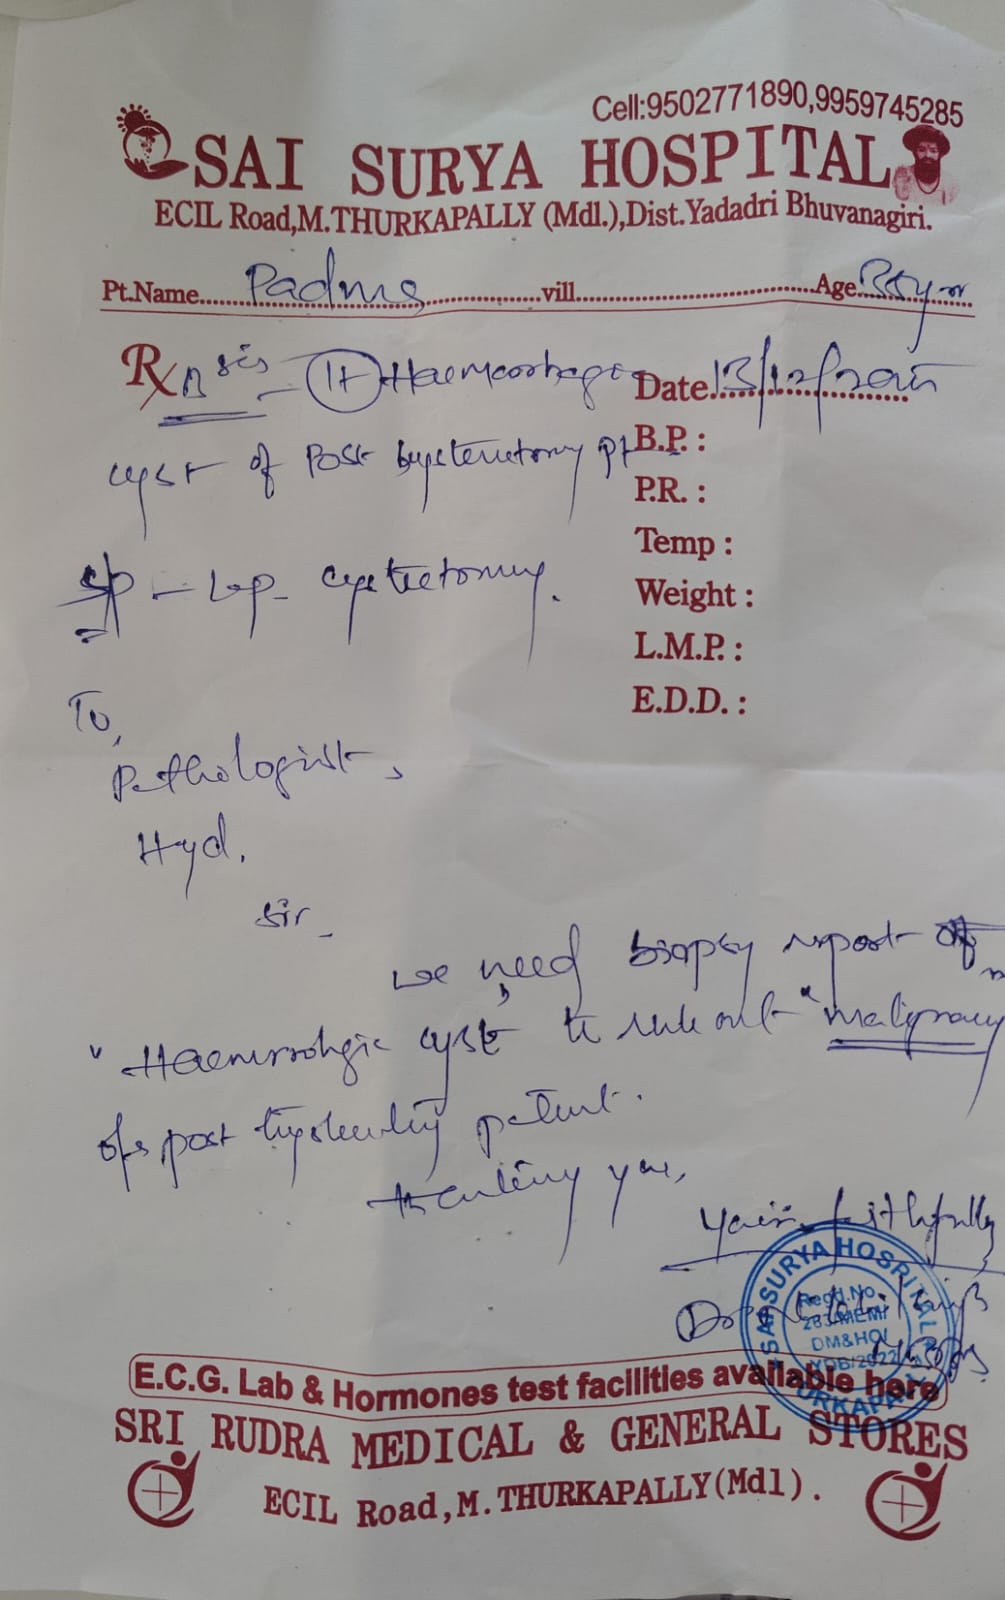 Cell:9502771890,9959745285
SAI SURYA HOSPITAL
ECIL Road,M.THURKAPALLY (Mdl.),Dist.Yadadri Bhuvanagiri.
Pt.Name Padma vill. Age
Rx Δsis - Haemorrhagic Date. 13/12/2025
cyst of Post hysterectomy pt B.P. :
P.R. :
Temp :
S/P - Lap cystectomy. Weight :
L.M.P. :
E.D.D. :
To,
Pathologist,
Hyd.
Sir -
we need biopsy report of
"Haemorrhgic cyst to rule out "malignancy
of post hysterectomy patient.
thanking you,
Yours faithfully
SAI SURYA HOSPITAL
Regd.No.
DM&HO/
YDB/2022
THURKAPALLY
E.C.G. Lab & Hormones test facilities available here
SRI RUDRA MEDICAL & GENERAL STORES
ECIL Road,M.THURKAPALLY(Mdl).